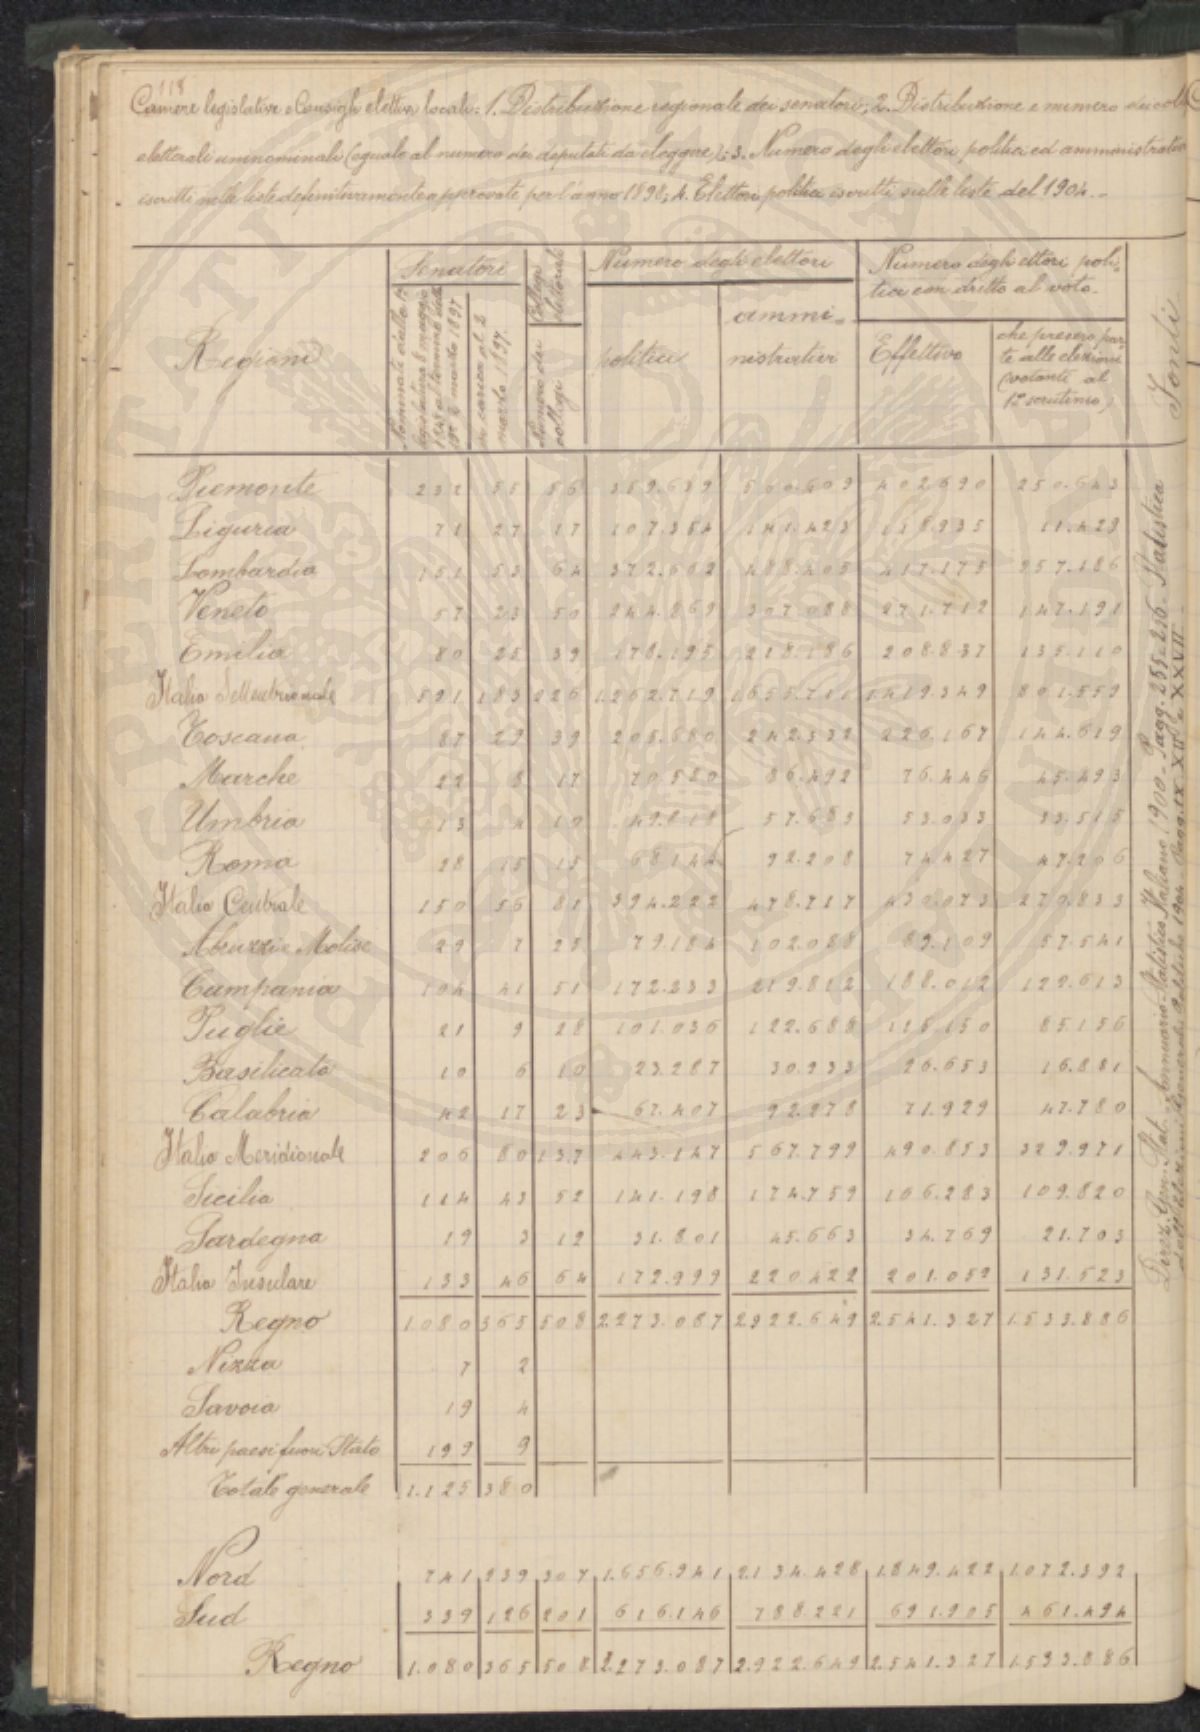 118
Camere legislative e Consigli elettivi locali: 1. Distribuzione regionale dei senatori; 2. Distribuzione e numero dei coll
elettorali uninominali (eguale al numero dei deputati da eleggere); 3. Numero degli elettori politici ed amministrativi
iscritti nelle liste definitivamente approvate per l'anno 1898; 4. Elettori politici iscritti sulle liste del 1904.
Regioni
Senatori
in carica al 2 marzo 1897.
Collegi elettorali
Numero dei collegi
Numero degli elettori
politici
ammi-
nistrativi
Numero degli ettori poli-
tici con dritto al voto.
Effettivo
che presero par-
te alle elezioni
(votanti al
1º scrutinio)
Fonti
Piemonte 232 55 56 359.639 560.609 402.690 250.643
Liguria 71 27 17 107.354 141.423 118.935 11.429
Lombardia 151 53 64 372.662 488.405 417.175 257.186
Veneto 57 23 50 244.869 307.088 271.712 147.191
Emilia 80 25 39 178.195 218.186 208.837 135.110
Italia Settentrionale 591 183 226 1.262.719 1.655.711 1.419.349 801.559
Toscana 87 29 39 205.680 242.332 226.167 144.619
Marche 22 8 17 70.580 86.492 76.446 45.493
Umbria 13 4 10 49.818 57.683 53.033 33.515
Roma 28 15 15 68.144 92.208 74.427 47.206
Italia Centrale 150 56 81 394.222 478.717 430.073 270.833
Abruzzi e Molise 29 7 25 79.184 102.088 89.109 57.541
Campania 104 41 51 172.233 219.812 188.012 122.613
Puglie 21 9 28 101.036 122.688 115.150 85.156
Basilicata 10 6 10 23.287 30.933 26.653 16.881
Calabria 42 17 23 67.407 92.278 71.929 47.780
Italia Meridionale 206 80 137 443.147 567.799 490.853 329.971
Sicilia 114 43 52 141.198 174.759 166.283 109.820
Sardegna 19 3 12 31.801 45.663 34.769 21.703
Italia Insulare 133 46 64 172.999 220.422 201.052 131.523
Regno 1080 365 508 2.273.087 2.922.649 2.541.327 1.533.886
Nizza 7 2
Savoia 19 4
Altri paesi fuori Stato 199 9
Totale generale 1.125 380
Nord 741 239 307 1.656.941 2.134.428 1.849.422 1.072.392
Sud 339 126 201 616.146 788.221 691.905 461.494
Regno 1.080 365 508 2.273.087 2.922.649 2.541.327 1.533.886
Direz. Gen. Stat. Annuario Statistico Italiano 1900 - Pagg. 255-256 - Statistica